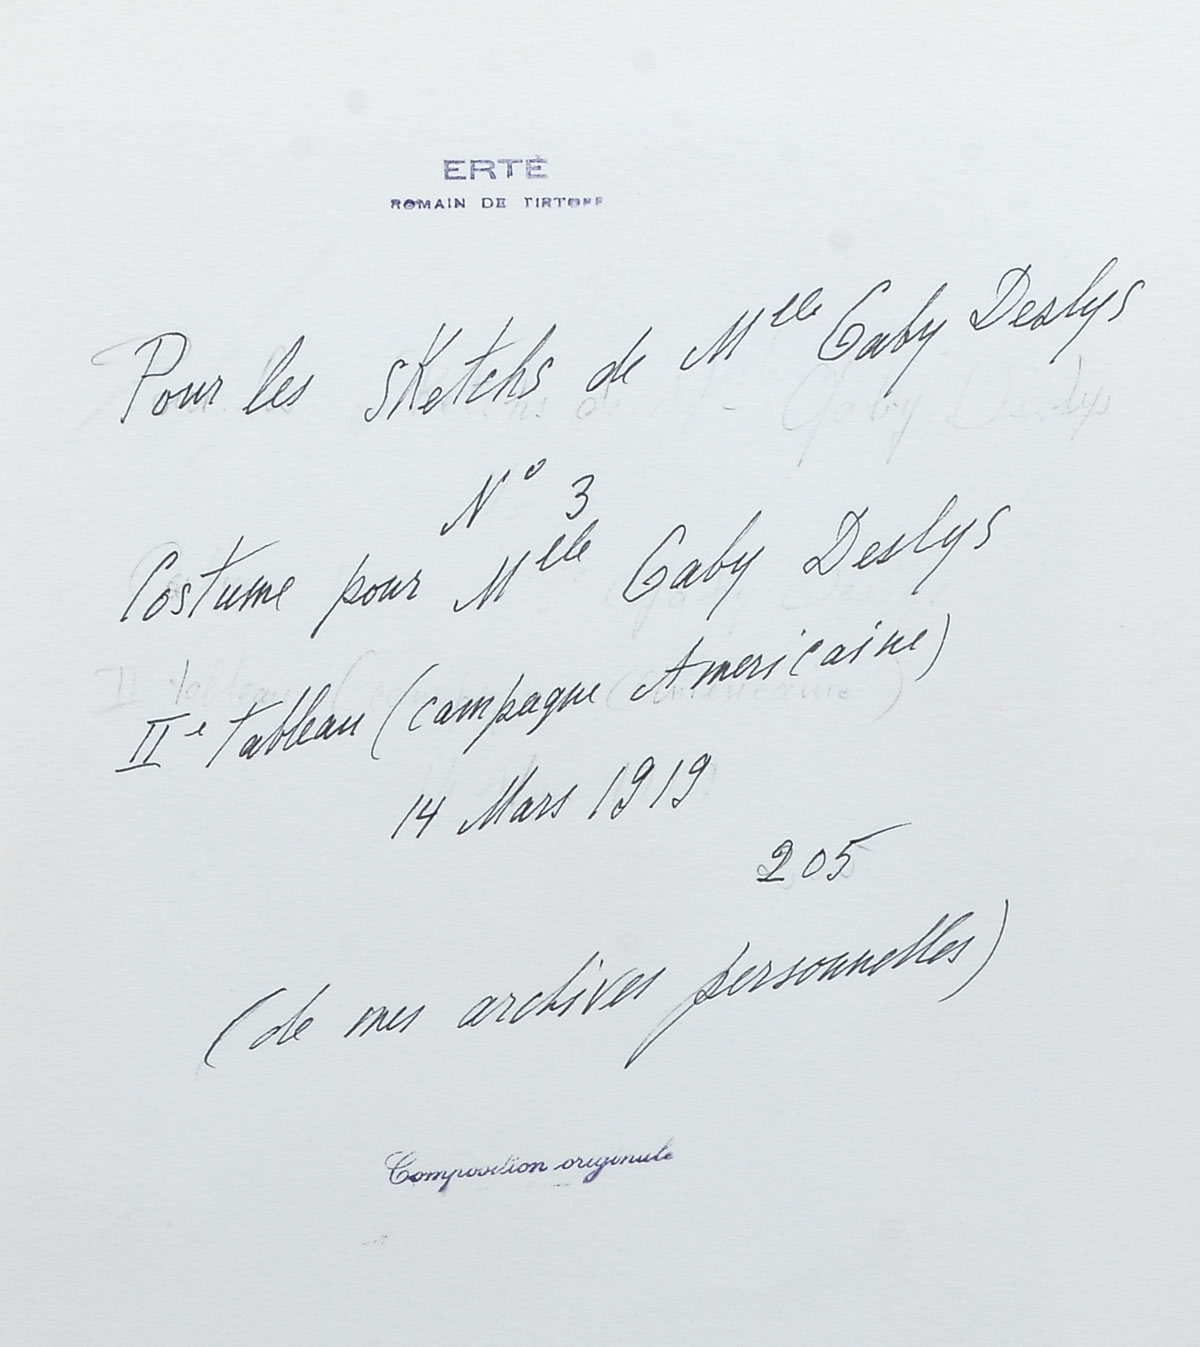 ERTÉ
ROMAIN DE TIRTOFF
Pour les sketchs de Mlle Gaby Deslys
N° 3
Costume pour Mlle Gaby Deslys
IIe tableau (campagne Americaine)
14 Mars 1919
205
(de mes archives personnelles)
Composition originale